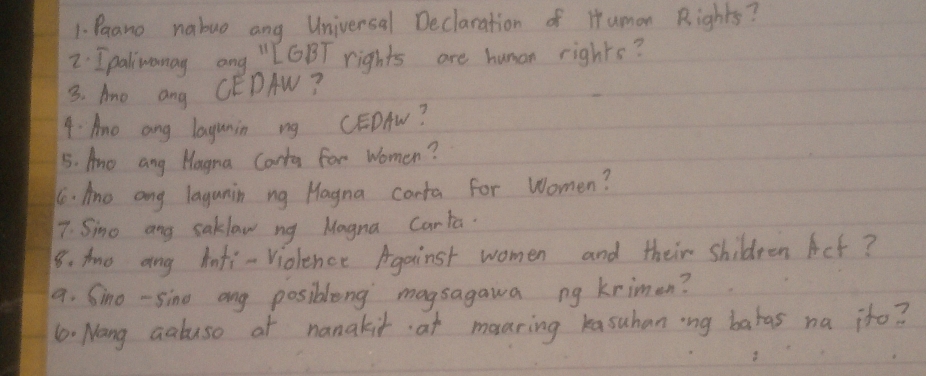 1. Paano nabuo ang Universal Declaration of Human Rights?
2. Ipaliwanag ang "LGBT rights are human rights?
3. Ano ang CEDAW?
4. Ano ang layunin ng CEDAW?
5. Ano ang Magna Carta for Women?
6. Ano ang layunin ng Magna carta for Women?
7. Sino ang saklaw ng Magna Carta.
8. Ano ang Anti-Violence Against women and their Shildren Act?
9. Sino-sino ang posibleng magsagawa ng krimen?
10. Nang aabuso at nanakit at maaring kasuhan ng batas na ito?